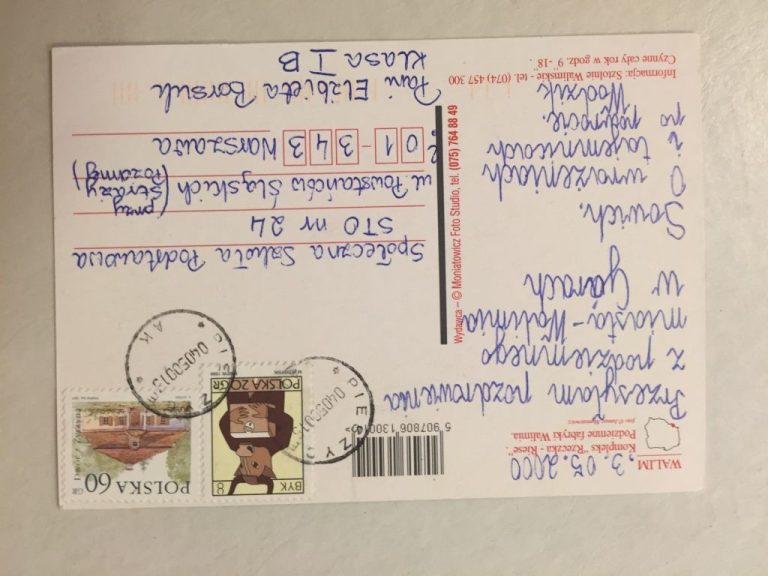 WALIM
Kompleks "Rzeczka - Riese".
Podziemne fabryki Walimia.
3.05.2000
Przesyłam pozdrowienia
z podziemnego
miasta-Walimia
w Górach
Sowich.
O wrażeniach
i tajemnicach
po powrocie.
Wodzik
Informacja: Sztolnie Walimskie - tel. (074) 457 300
Czynne cały rok w godz. 9 - 18.
Wydawca - © Moniatowicz Foto Studio, tel. (075) 764 88 49
5 907806 130015
BYK
8
POLSKA 20 GR
POLSKA 60 GR
040500
040500
Społeczna Szkoła Podstawowa
STO nr 24
ul Powstańców Śląskich (przy Straży Pożarnej)
01-343 Warszawa
Pani Elżbieta Borsuk
Klasa I B